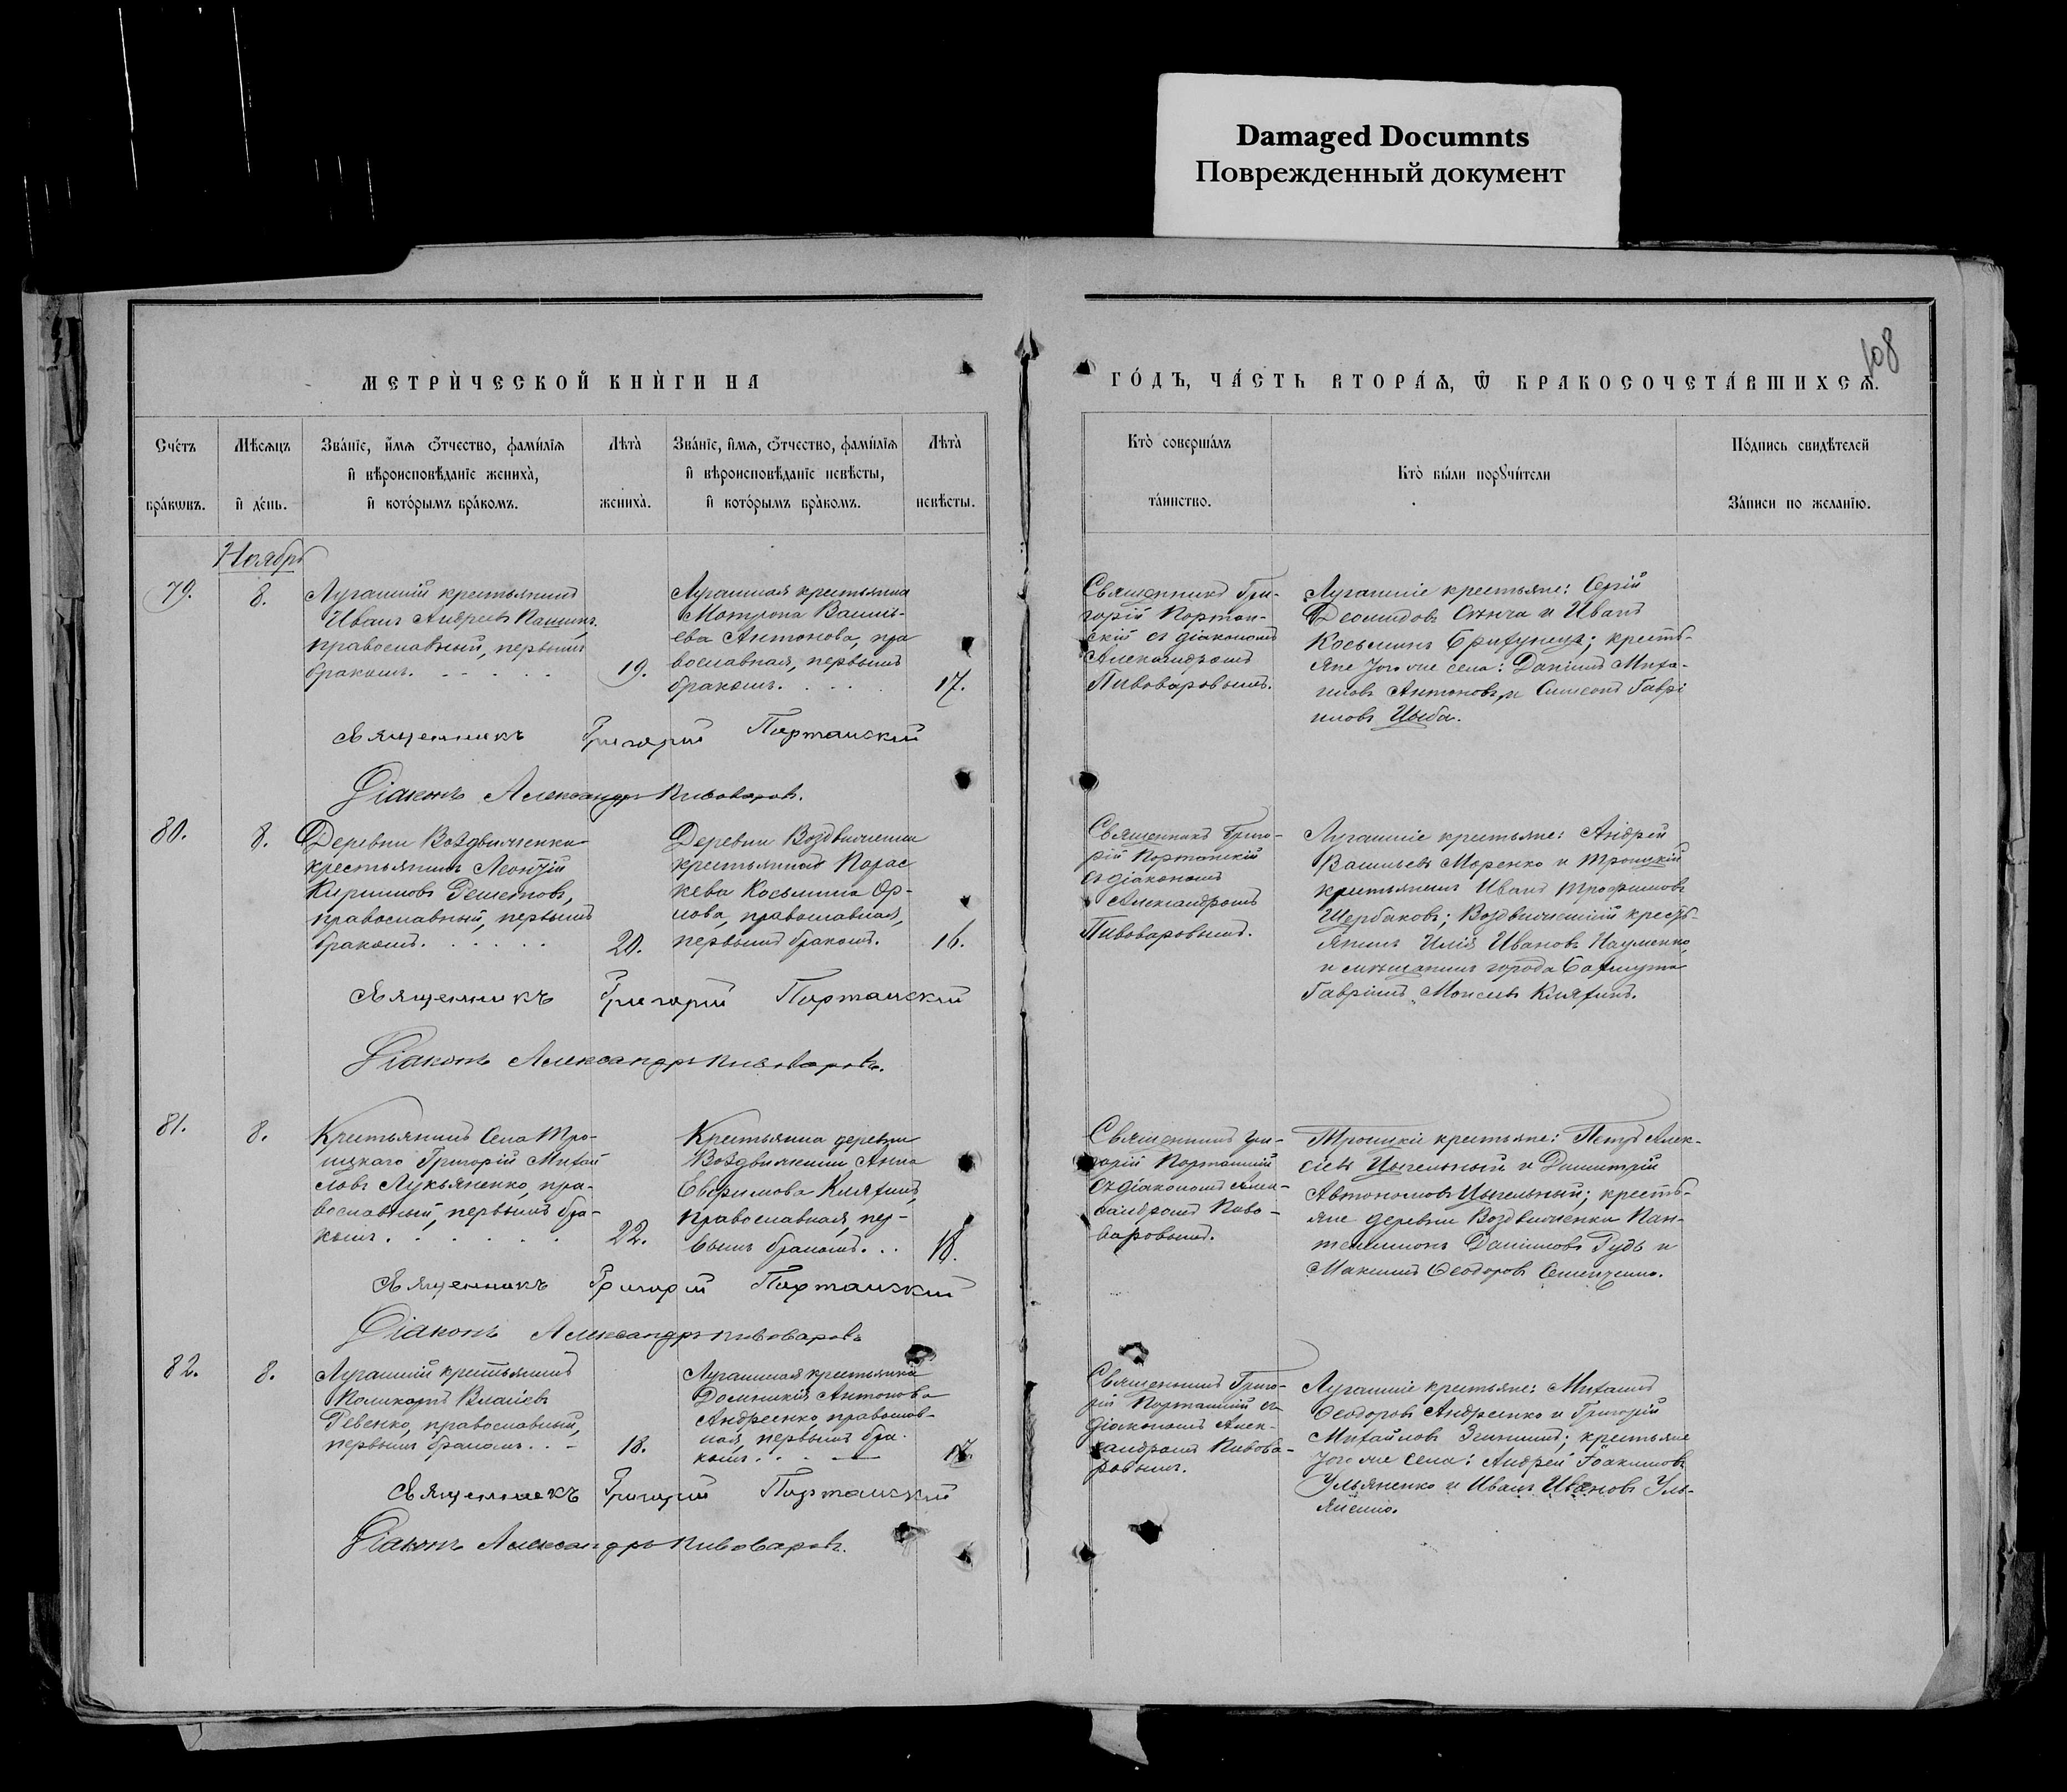 Damaged Documnts
Поврежденный документ
108
МЕТРИ́ЧЕСКОЙ КНИ́ГИ НА
ГО́ДЪ, ЧА́СТЬ ВТОРА́Ѧ, Ѽ БРАКОСОЧЕТА́ВШИХСѦ.
Сче́тъ
бра́кѡвъ.
Мѣ́сѧцъ
и҆ де́нь.
Зва́нїе, и҆́мѧ ѻ҆́тчество, фами́лїѧ
и҆ вѣроисповѣ́данїе жениха̀,
и҆ кото́рымъ бра́комъ.
Лѣта̀
жениха̀.
Зва́нїе, и҆́мѧ, ѻ҆́тчество, фами́лїѧ
и҆ вѣроисповѣ́данїе невѣ́сты,
и҆ кото́рымъ бра́комъ.
Лѣта̀
невѣ́сты.
Кто̀ соверша́лъ
та́инство.
Кто̀ бы́ли порꙋчи́тели
По́дпись свидѣ́телей
За́писи по жела́нїю.
Ноябрь
79.
8.
Луганскій крестьянинъ
Иванъ Андреевъ
православный, первымъ
бракомъ.
19.
Луганская крестьянка
Мотрона Василь-
ева Антонова, пра
вославная, первымъ
бракомъ.
17.
Священникъ Гри-
горій Портан-
скій съ діакономъ
Александромъ
Пивоваровымъ.
Луганскіе крестьяне: Сергій
Деомидовъ и Иванъ
Косьминъ кресть-
яне того же села: Даніилъ Миха-
иловъ Антоновъ, и Симеонъ Гаврі
иловъ Цыба.
Священникъ Григорій Портанскій
Діаконъ Александръ Пивоваровъ.
80.
8.
Деревни Воздвиженки
крестьянинъ Леонтій
Кириловъ Решетовъ,
православный, первымъ
бракомъ.
20.
Деревни Воздвиженки
крестьянка Парас
кева Косьмина Ор-
лова, православная,
первымъ бракомъ.
16.
Священникъ Григо-
рій Портанскій
съ діакономъ
Александромъ
Пивоваровымъ.
Луганскіе крестьяне: Андрей
Васильевъ Моренко и Троицкій
крестьянинъ Иванъ Трофимовъ
Щербаковъ; Воздвиженскій кресть-
янинъ Илія Ивановъ Науменко,
и мѣщанинъ города Бахмута
Гавріилъ Моисеевъ Княгинъ.
Священникъ Григорій Портанскій
Діаконъ Александръ Пивоваровъ.
81.
8.
Крестьянинъ Села Тро-
ицкаго Григорій Михай
ловъ Лукьяненко, пра-
вославный, первымъ бра-
комъ.
22.
Крестьянка деревни
Воздвиженки Анна
Евфимова
православная, пер-
вымъ бракомъ.
18.
Священникъ Гри-
горій Портанскій
съ діакономъ Алек-
сандромъ Пиво-
варовымъ.
Троицкіе крестьяне: Петръ Алек-
сѣевъ Цыгельный и Димитрій
Автономовъ Цыгельный; кресть-
яне деревни Воздвиженки Пан-
телеимонъ Даніиловъ Рудь и
Максимъ Ѳеодоровъ Семенченко.
Священникъ Григорій Портанскій
Діаконъ Александръ Пивоваровъ
82.
8.
Луганскій крестьянинъ
Поликарпъ Власіевъ
Ревенко, православный,
первымъ бракомъ.
18.
Луганская крестьянка
Домникія Антонова
Андреенко, православ-
ная, первымъ бра-
комъ.
17.
Священникъ Григо-
рій Портанскій съ
діакономъ Алек-
сандромъ Пивова-
ровымъ.
Луганскіе крестьяне: Михаилъ
Ѳеодоровъ Андреенко и Григорій
Михайловъ крестьяне
того же села: Андрей Іоакимовъ
Ульяненко и Иванъ Ивановъ Уль-
яненко.
Священникъ Григорій Портанскій
Діаконъ Александръ Пивоваровъ.